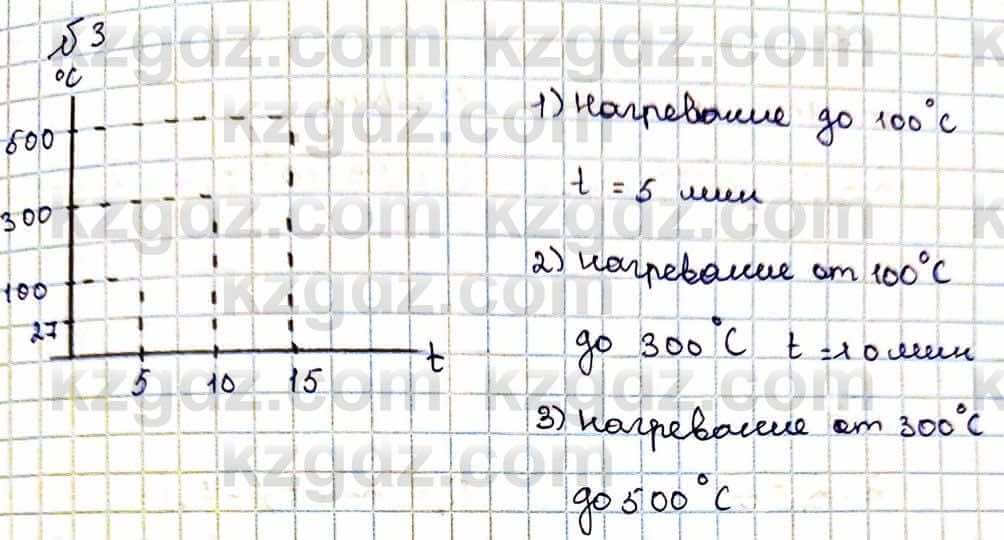 №3
°C
500
300
100
27
5 10 15 t
1) Нагревание до 100°C
t = 5 мин
2) нагревание от 100°C
до 300°C t = 10 мин
3) нагревание от 300°C
до 500°C
kzgdz.com